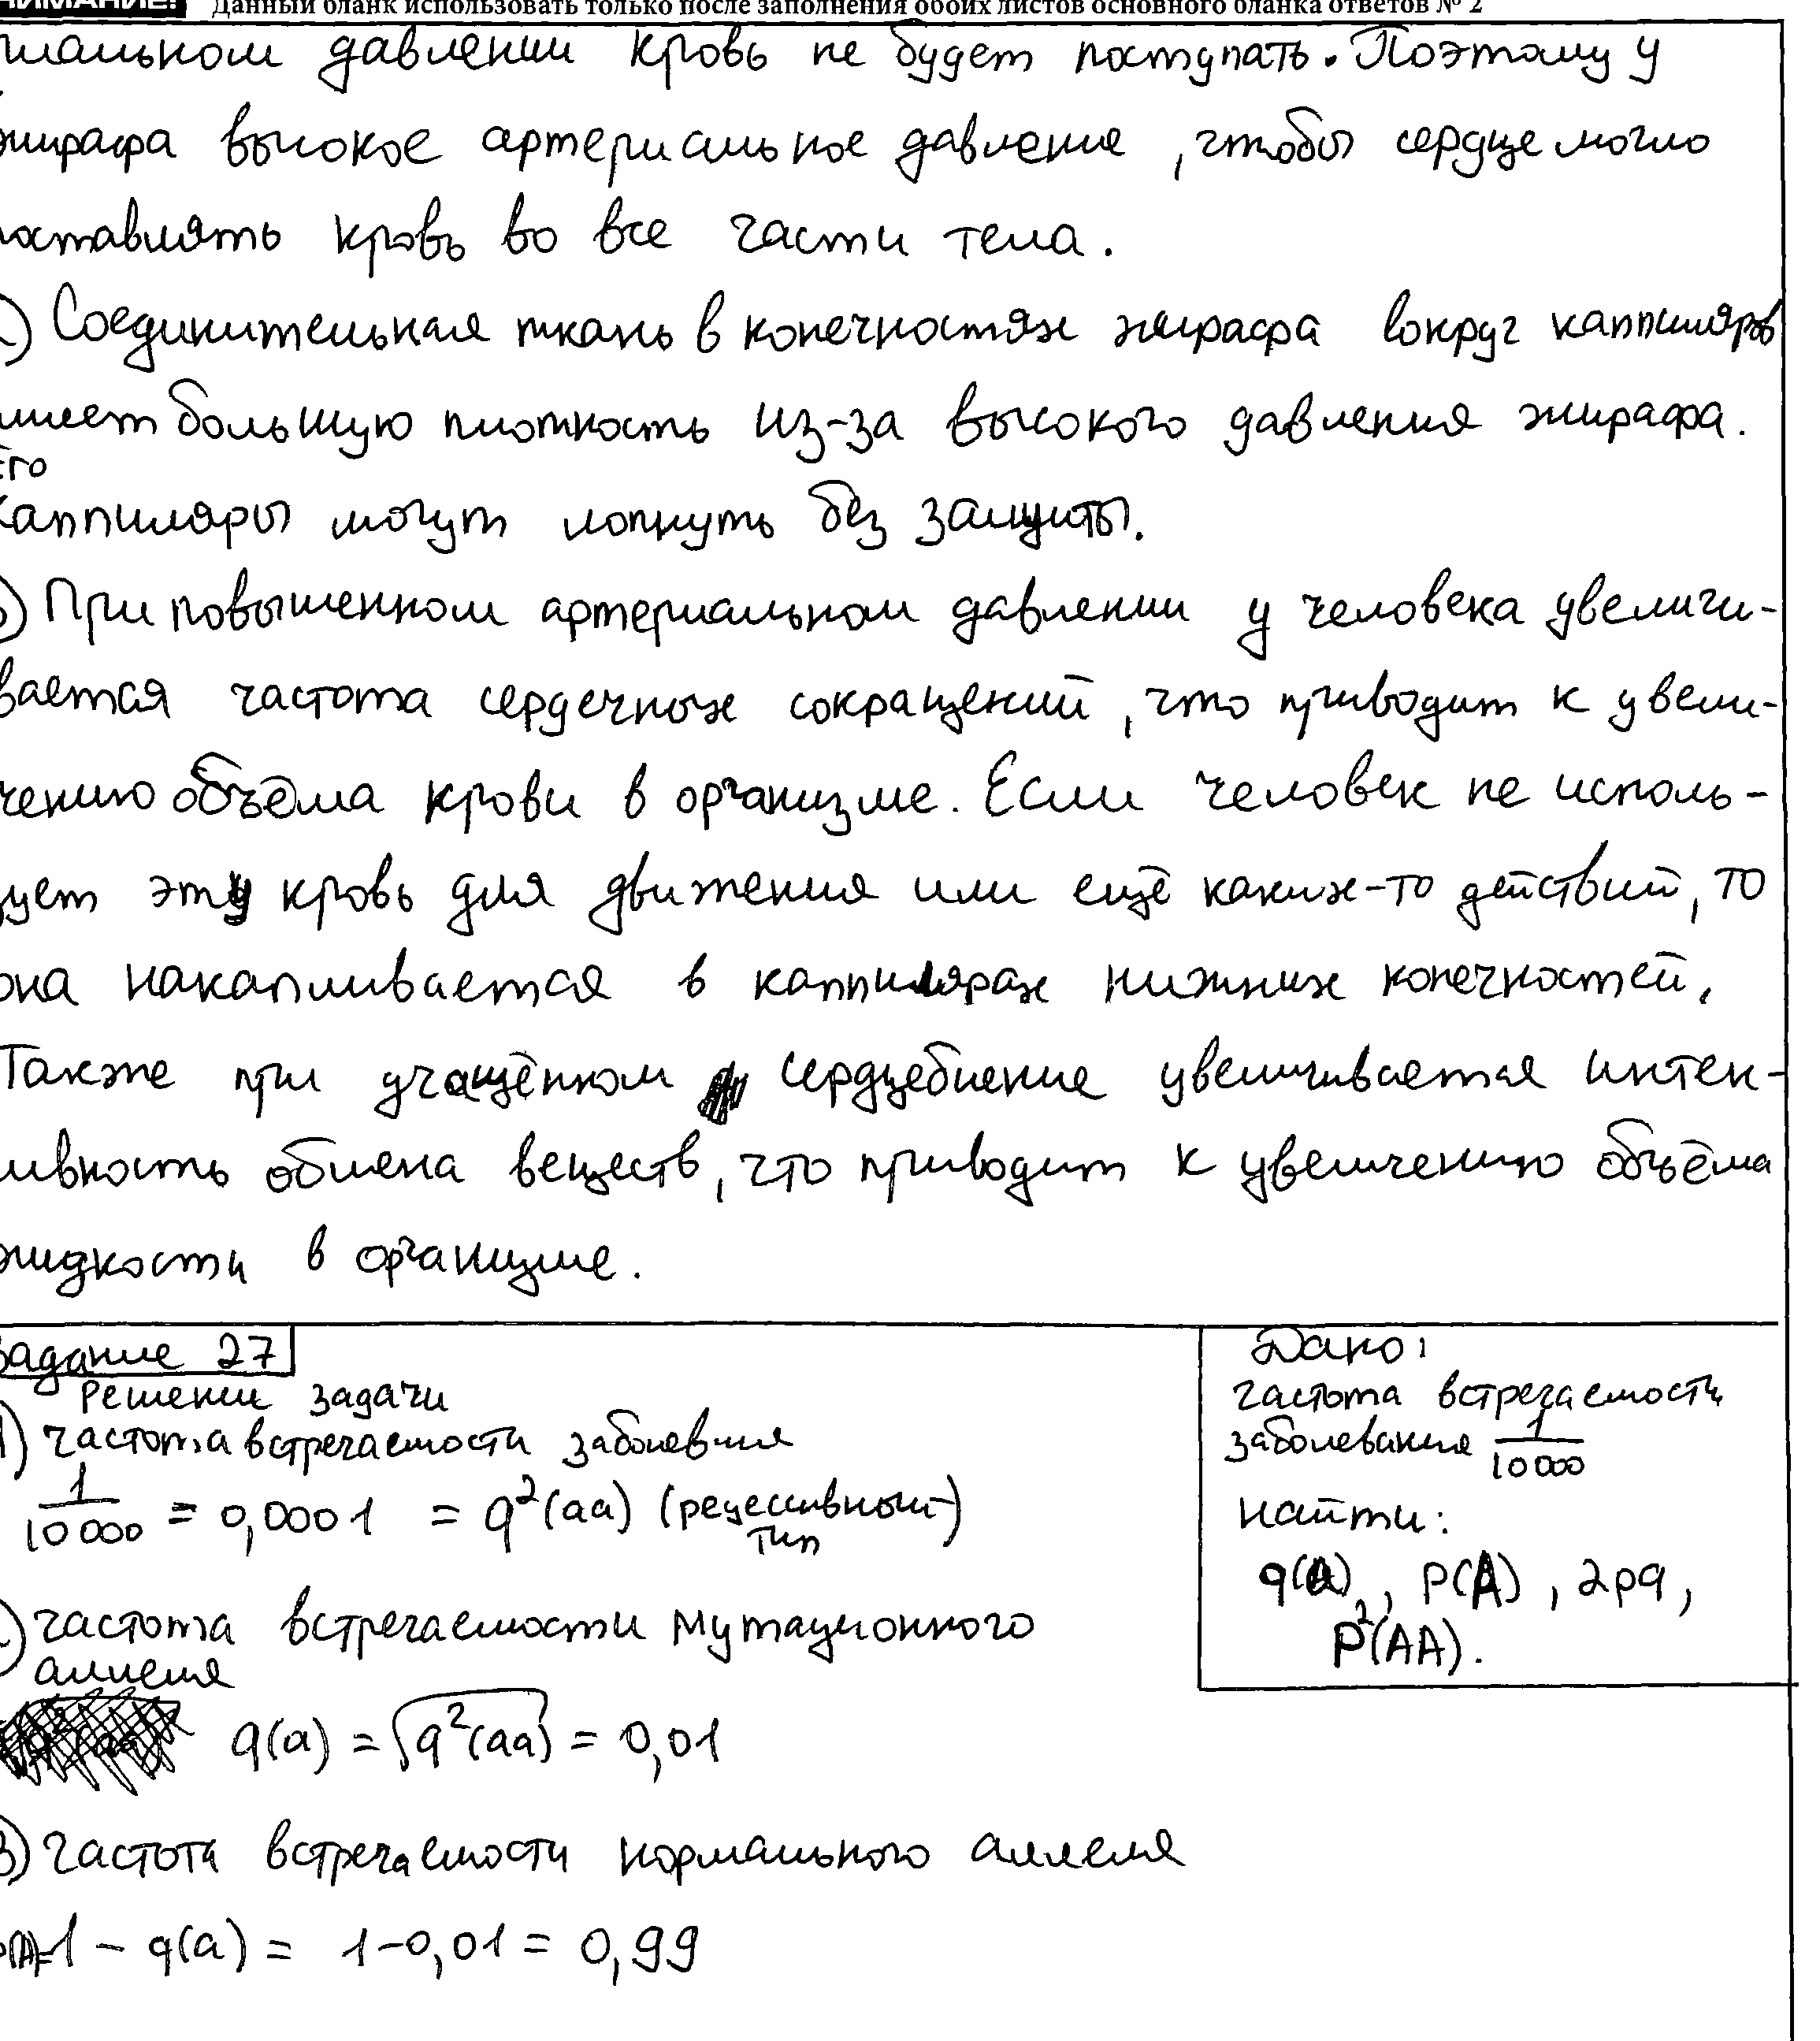 НИМАНИЕ! Данный бланк использовать только после заполнения обоих листов основного бланка ответов № 2
риальном давлении кровь не будет поступать. Поэтому у
жирафа высокое артериальное давление, чтобы сердце могло
оставлять кровь во все части тела.
) Соединительная ткань в конечностях жирафа вокруг каппиляров
имеет большую плотность из-за высокого давления жирафа.
Его
Каппиляры могут лопнуть без защиты.
) При повышенном артериальном давлении у человека увеличи-
вается частота сердечных сокращений, что приводит к увели-
чению объёма крови в организме. Если человек не исполь-
зует эту кровь для движения или ещё каких-то действий, то
она накапливается в каппилярах нижних конечностей.
Также при учащённом сердцебиение увеличивается интен-
сивность обмена веществ, что приводит к увеличению объёма
жидкости в организме.
Задание 27
Решении задачи
1) частота встречаемости заболевния
1/10 000 = 0,0001 = q²(aa) (рецессивный тип)
) частота встречаемости мутационного
аллеля
q(a) = √q²(aa) = 0,01
3) частоти встречаемости нормального аллеля
p(A)=1 - q(a) = 1-0,01 = 0,99
Дано:
частота встречаемости
заболевания 1/10 000
Найти:
q(a), p(A), 2pq,
p²(AA).